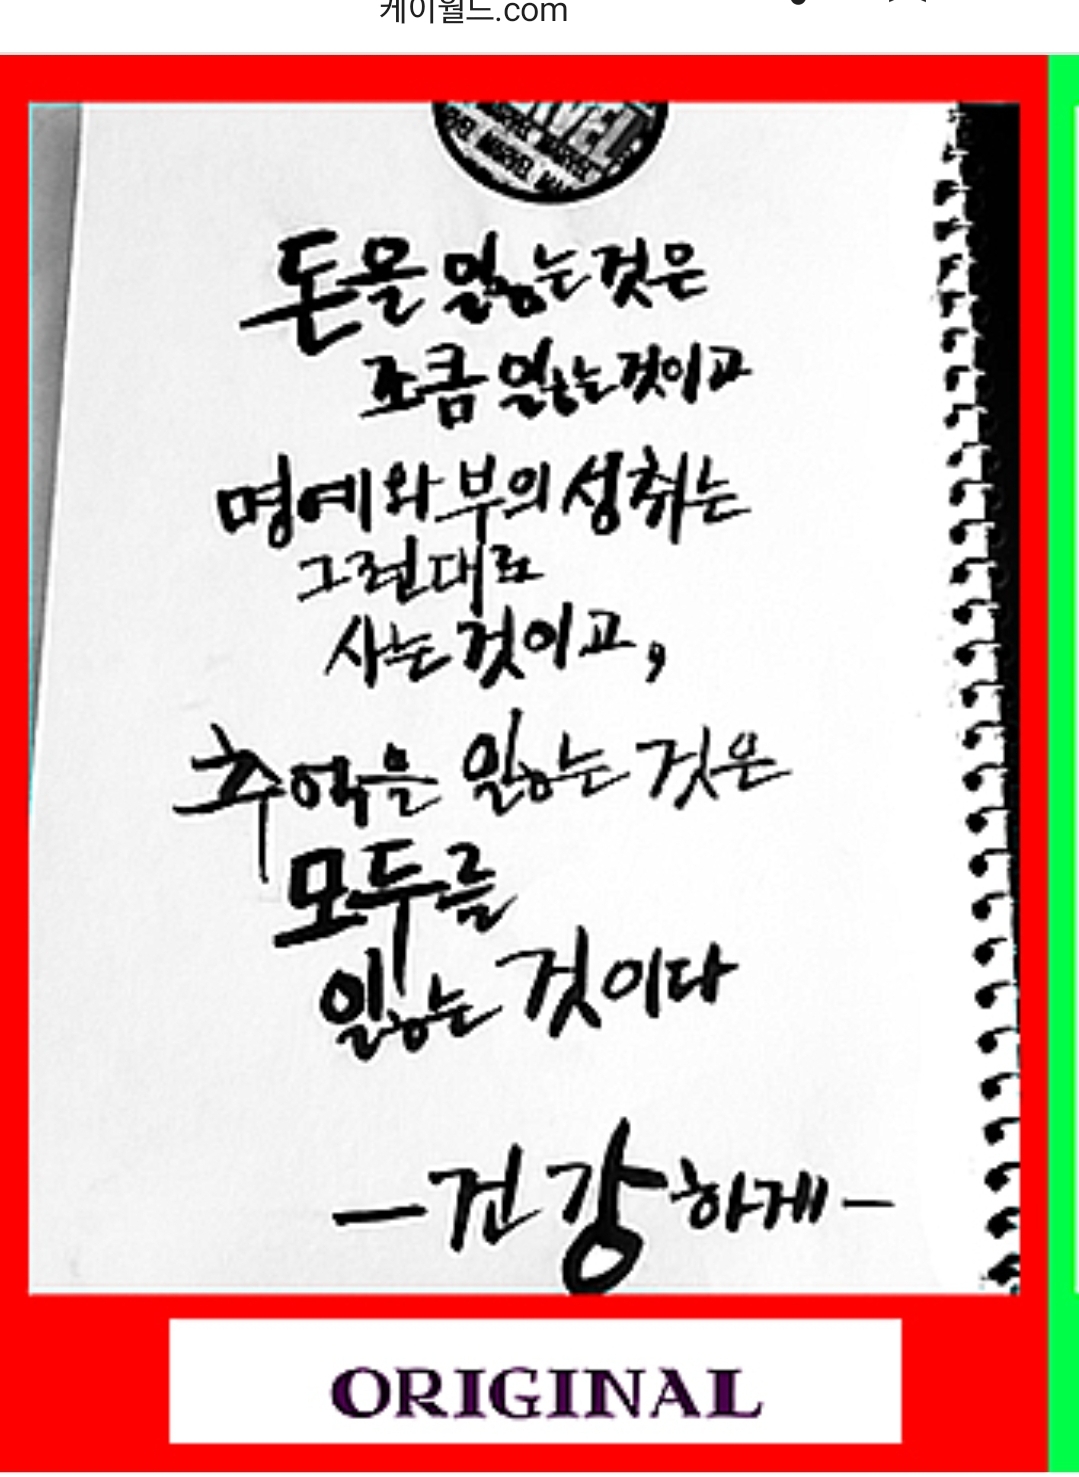 케이월드.com
MARVEL MARVEL
MARVEL MA
돈을 잃는것은
조금 잃는것이고
명예와 부의 성취는
그런대로
사는 것이고,
추억을 잃는 것은
모두를
잃는 것이다
-건강하게-
ORIGINAL